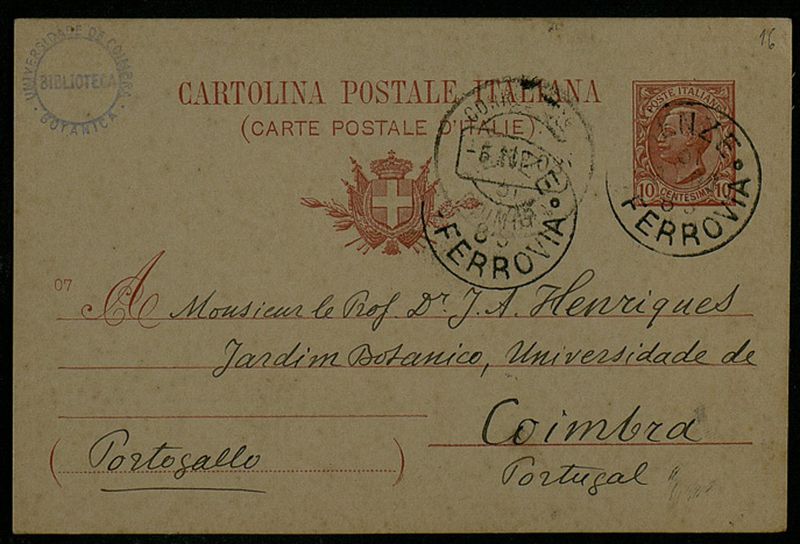 16
UNIVERSIDADE DE COIMBRA
BIBLIOTECA
BOTANICA
CARTOLINA POSTALE ITALIANA
(CARTE POSTALE D'ITALIE)
POSTE ITALIANE
10 CENTESIMI 10
FERROVIA
FERROVIA
07
A Monsieur le Prof. Dr. J. A. Henriques
Jardim Botanico, Universidade de
Coimbra
(Portogallo)
Portugal